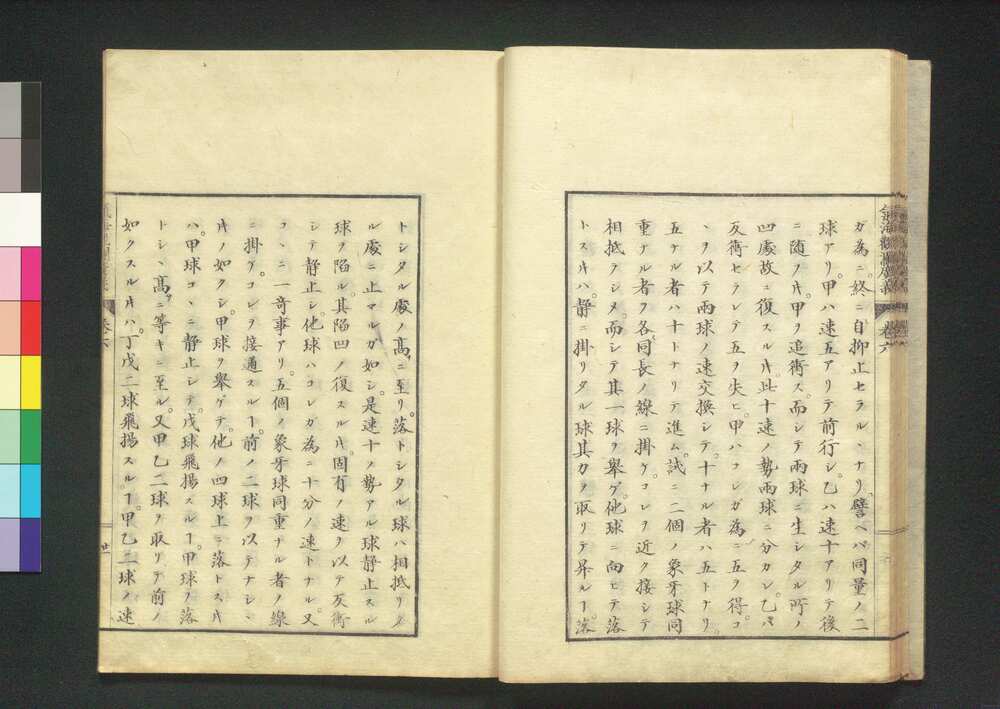 ガ為ニ。終ニ自抑止セラルヽナリ。譬ヘバ同量ノ二
球アリ。甲ハ速五アリテ前行シ。乙ハ速十アリテ後
ニ随ノ𪜈。甲ヲ追衝ス。而シテ両球ニ生シタル所ノ
凹處故ニ復スル𪜈。此十速ノ勢両球ニ分カレ。乙ハ
反衝セラレテ五ヲ失ヒ。甲ハコレガ為ニ五ヲ得。コ
ヽヲ以テ両球ノ速交換シテ。十ナル者ハ五トナリ。
五ナル者ハ十トナリテ進ム。試ニ二個ノ象牙球同
重ナル者ヲ各同長ノ線ニ掛ケ。コレヲ近ク接シテ
相抵ラシメ。而シテ其一球ヲ挙ゲ。他球ニ向ヒテ落
トス𪜈ハ。静ニ掛リタル球其力ヲ取リテ昇ルヿ。落
氣海觀瀾廣義 巻六
トシタル處ノ高ニ至リ。落トシタル球ハ相抵リタ
ル處ニ止マルガ如シ。是速十ノ勢アル球静止スル
球ヲ陥ル。其陥凹ノ復スル𪜈。固有ノ速ヲ以テ反衝
シテ静止シ。他球ハコレガ為ニ十分ノ速トナル。又
コヽニ一奇事アリ。五個ノ象牙球同重ナル者ノ線
ニ掛ケ。コレヲ接通スルヿ。前ノ二球ヲ以テナシヽ
𪜈ノ如クシ。甲球ヲ挙ゲテ。他ノ四球上ニ落トス𪜈
ハ。甲球コヽニ静止シテ。戊球飛揚スルヿ。甲球ヲ落
トシヽ高ニ等キニ至ル。又甲乙二球ヲ取リテ前ノ
如クスル𪜈ハ。丁戊二球飛揚スルヿ。甲乙二球ノ速
巻六
廿一